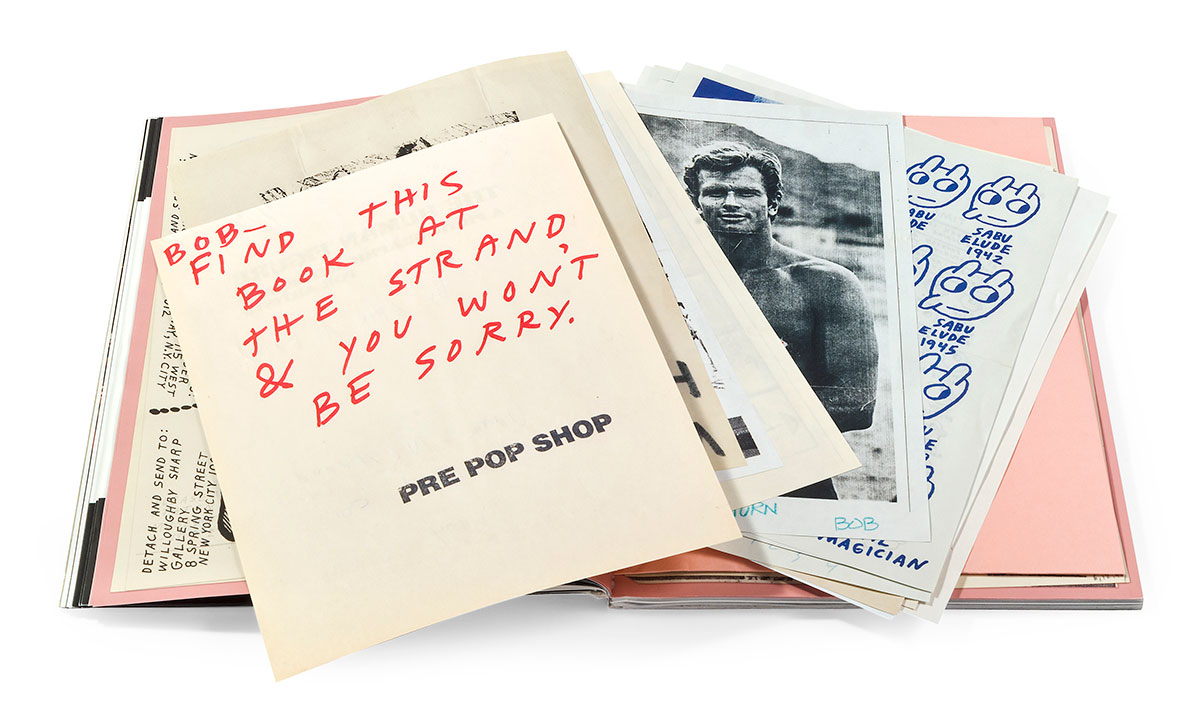 BOB—
FIND THIS
BOOK AT
THE STRAND,
& YOU WON'T
BE SORRY.
PRE POP SHOP
DETACH AND SEND TO:
WILLOUGHBY SHARP
GALLERY
8 SPRING STREET
NEW YORK CITY
115 WEST
N.Y. CITY
BOB
MAGICIAN
SABU
ELUDE
1942
SABU
ELUDE
1945